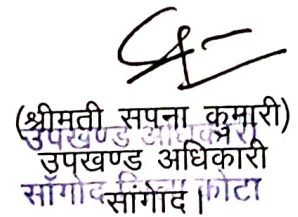 (श्रीमती सपना कुमारी)
उपखण्ड अधिकारी
उपखण्ड अधिकारी
साँगोद जिला कोटा
सांगोद।